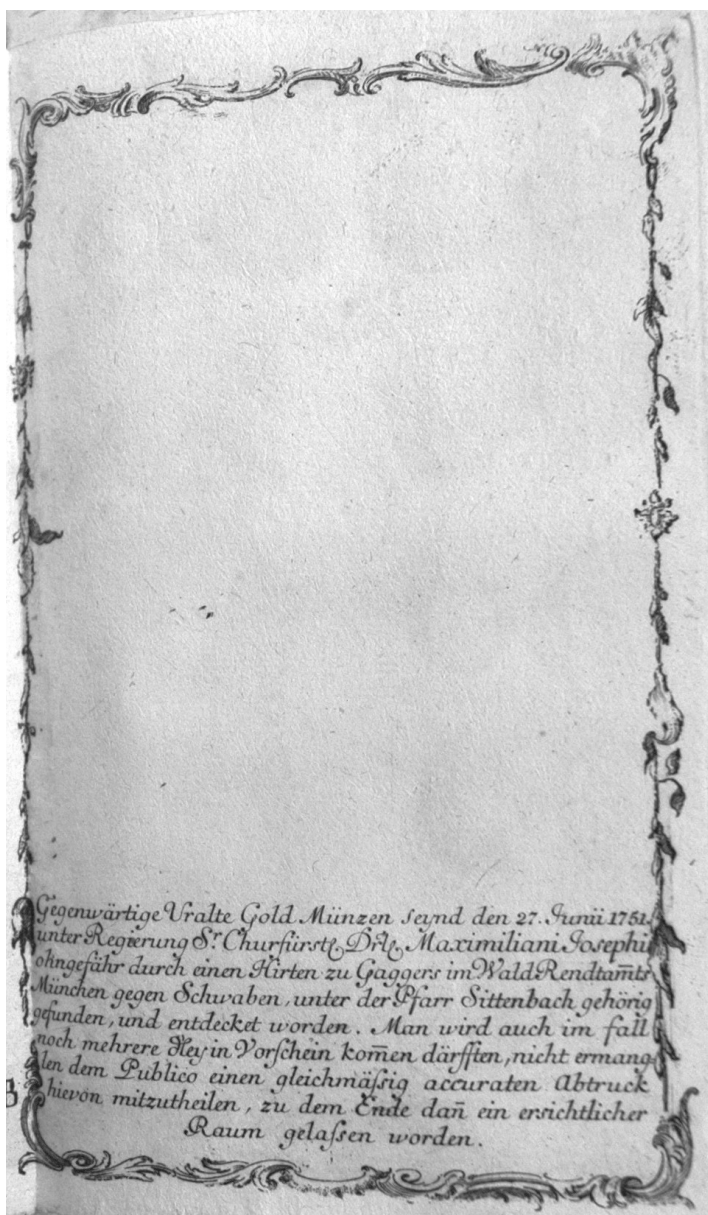 Gegenwärtige Uralte Gold Münzen seynd den 27. Junii 1751.
unter Regierung Sr. Churfürstl. Drl. Maximiliani Josephi
ohngefähr durch einen Hirten zu Gaggers im Wald Rendtam̄ts
München gegen Schwaben, unter der Pfarr Sittenbach gehörig
gefunden, und entdecket worden. Man wird auch im fall
noch mehrere in Vorschein kom̄en därfften, nicht ermang-
len dem Publico einen gleichmäſsig accuraten Abtruck
hievon mitzutheilen, zu dem Ende dan̄ ein ersichtlicher
Raum gelaſsen worden.